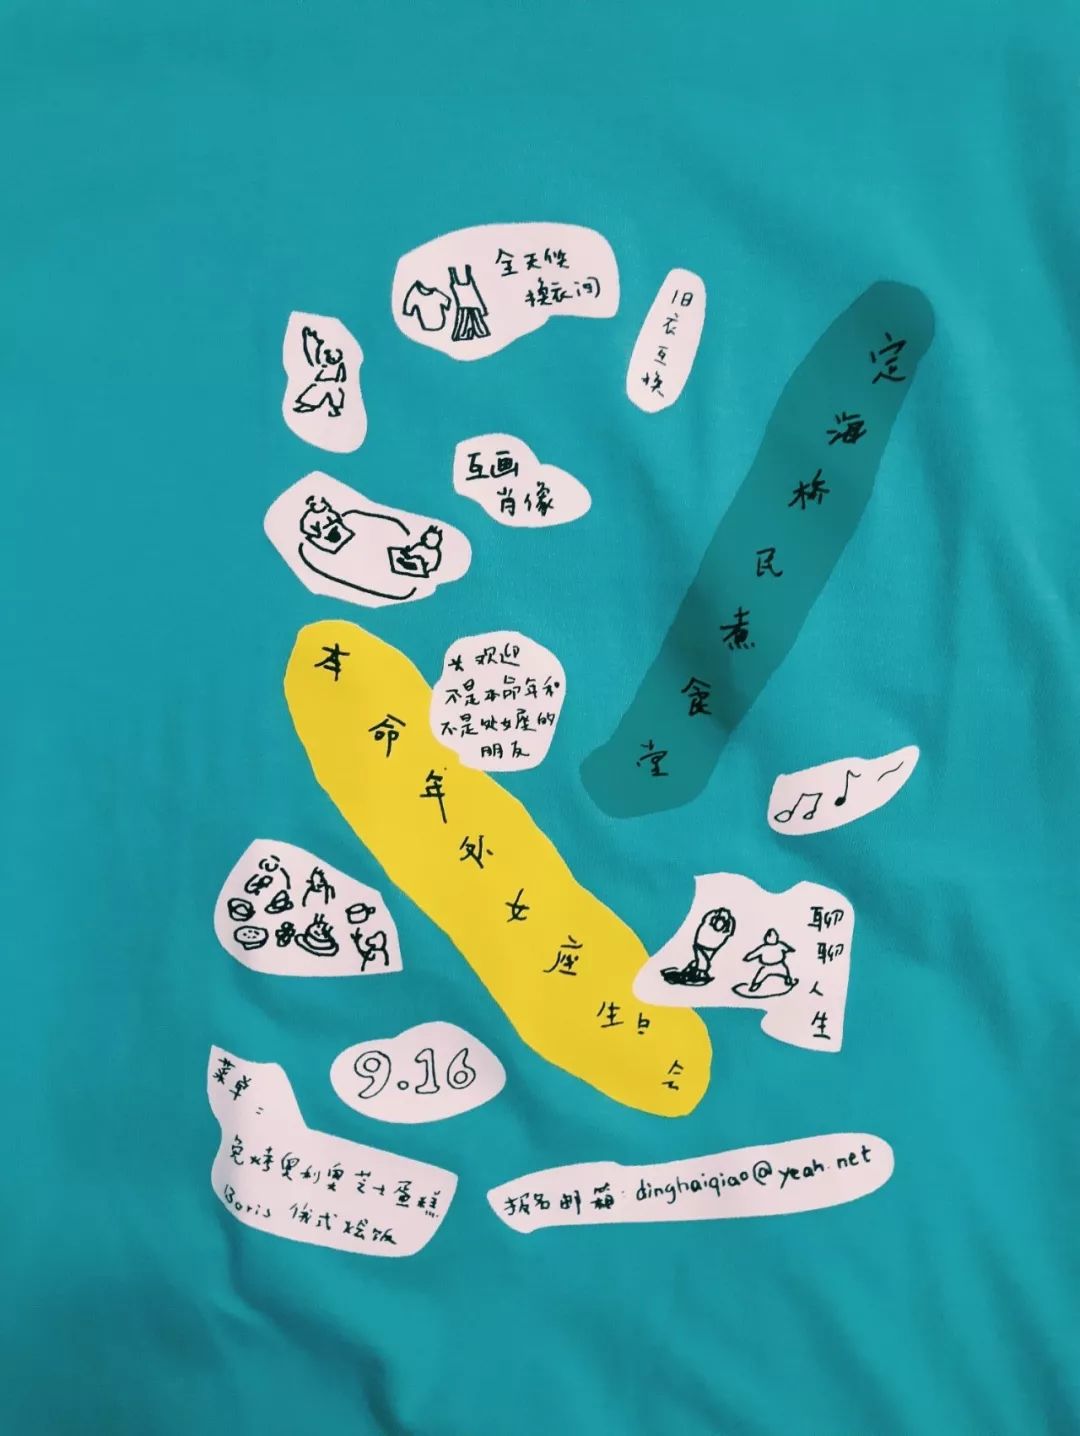 全天候
换衣间
旧衣互换
定海桥民煮食堂
互画
肖像
本命年处女座生日会
* 欢迎
不是本命年和
不是处女座的
朋友
聊聊人生
9.16
菜单：
免烤奥利奥芝士蛋糕
Boris 俄式烩饭
报名邮箱：dinghaiqiao@yeah.net